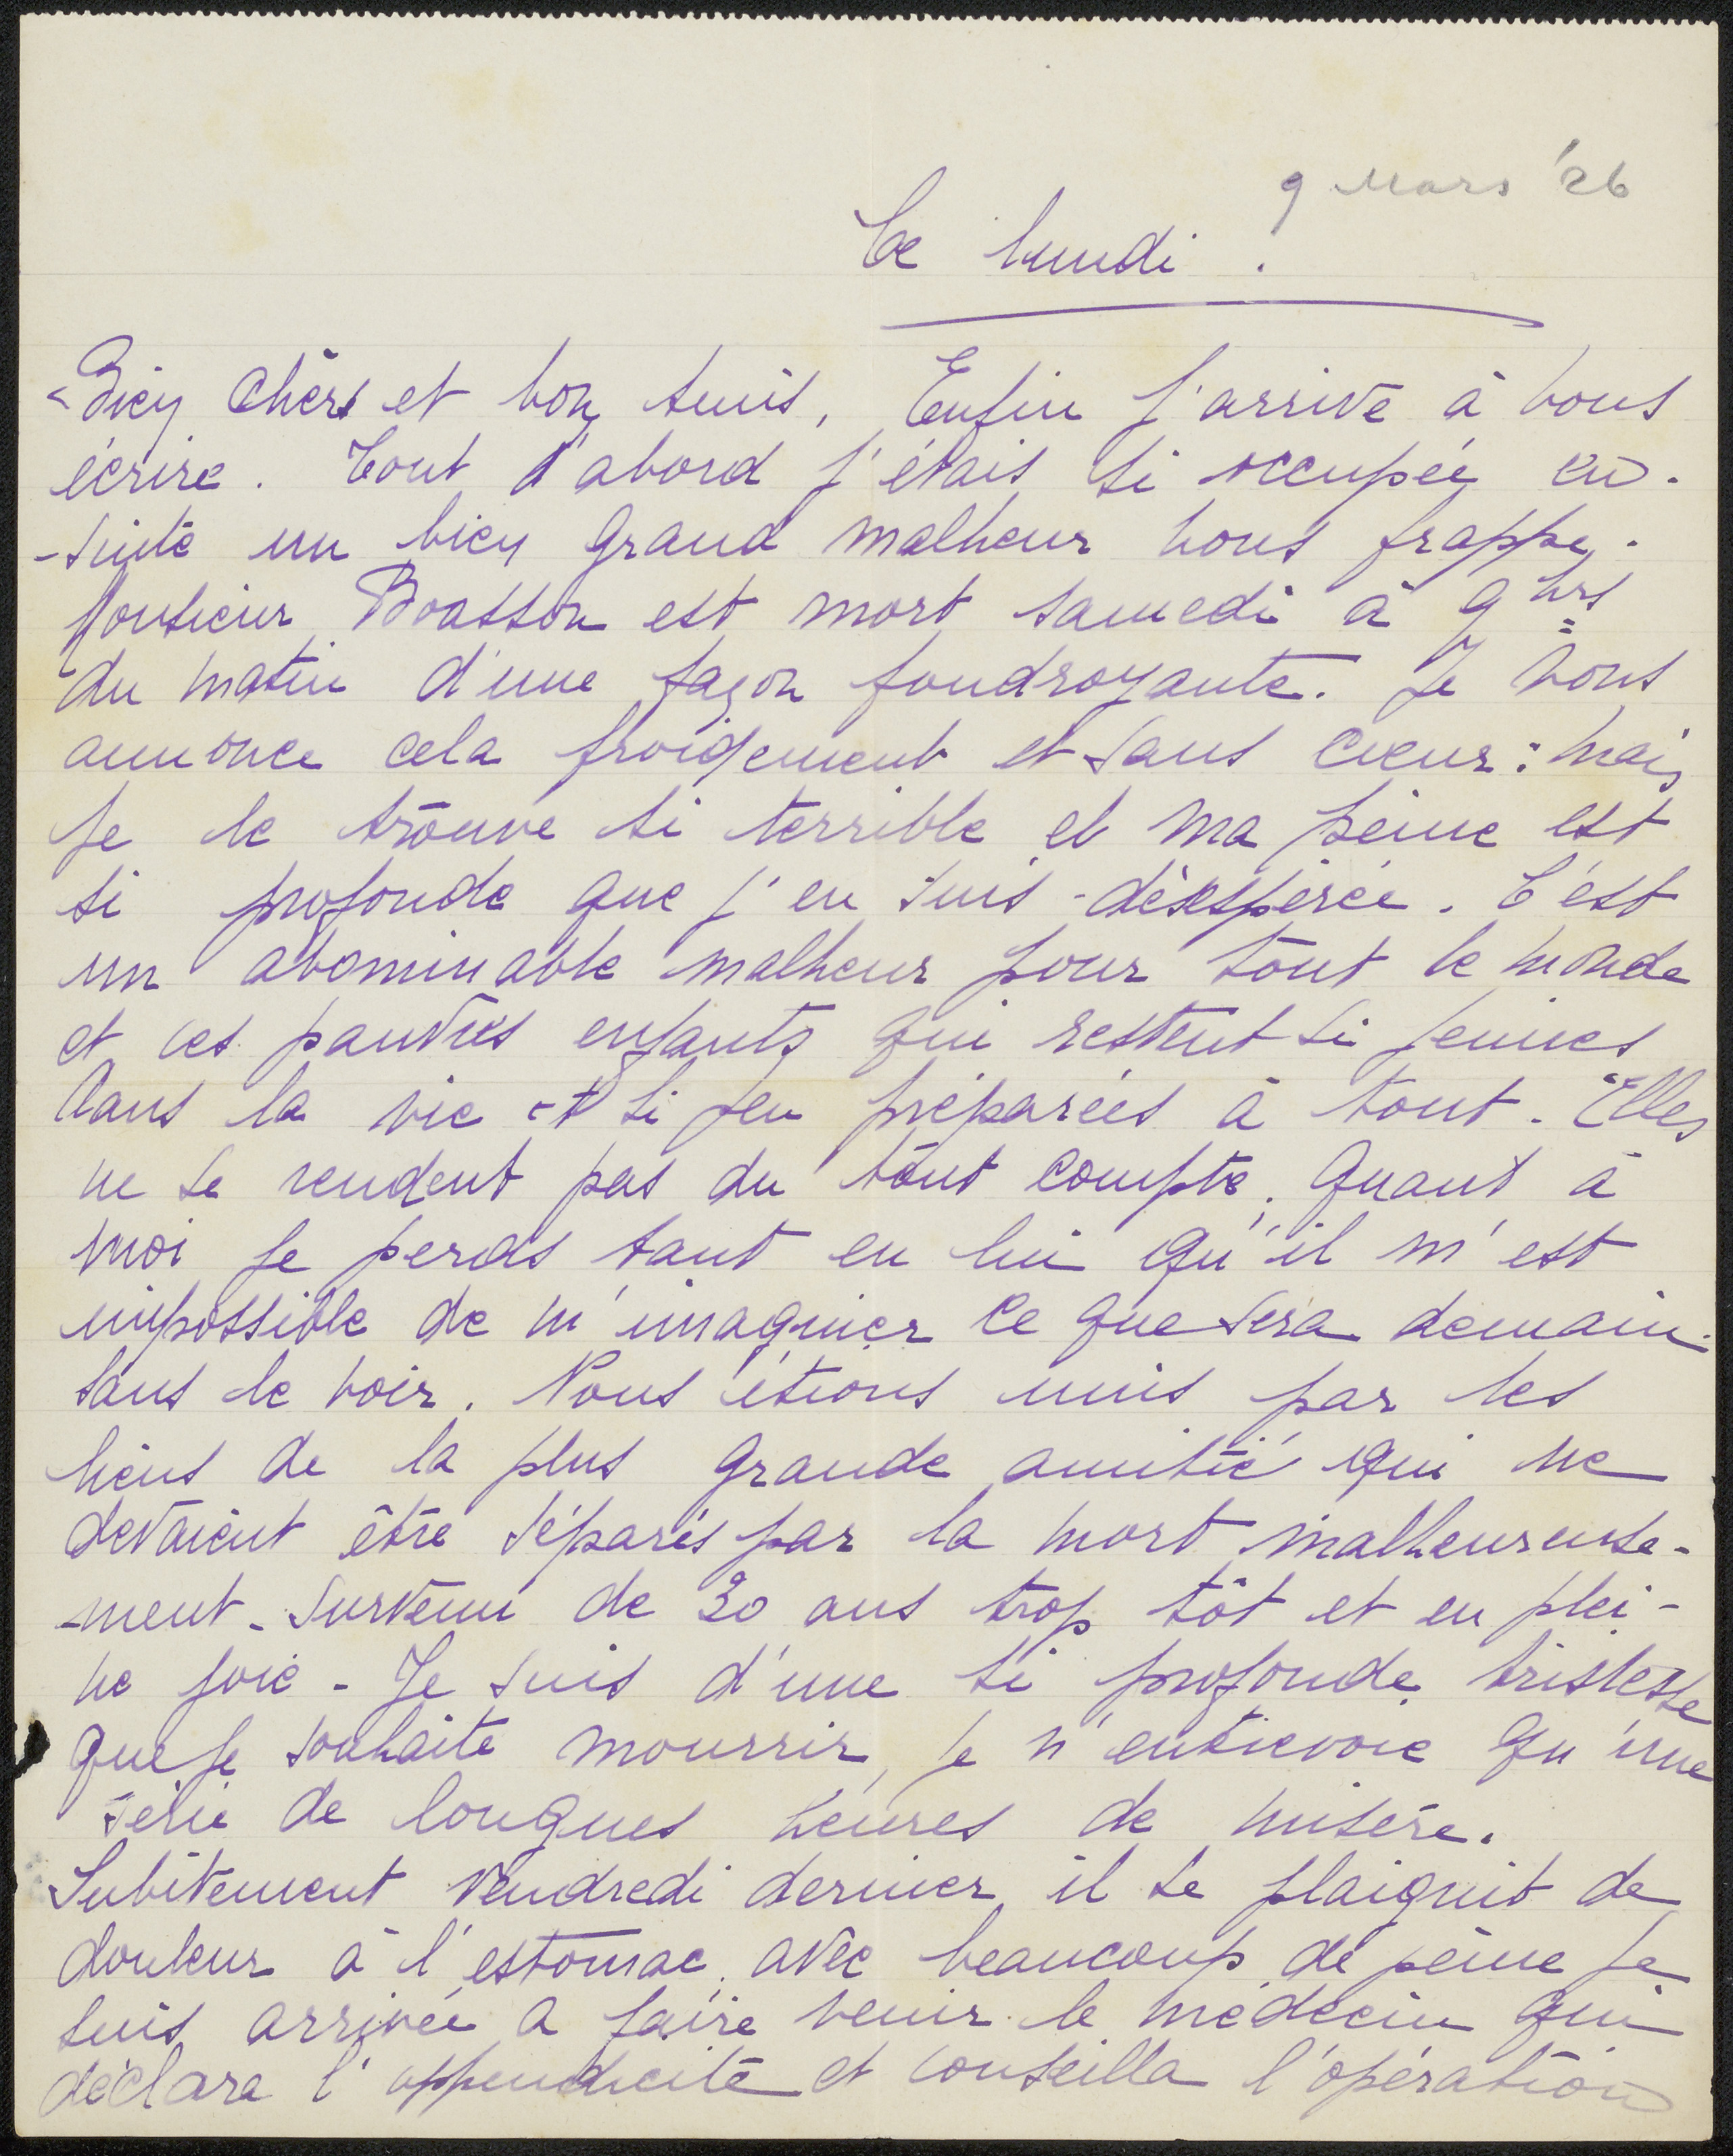 9 Mars '26
Ce lundi.
Bien Chèrs et bon amis, Enfin j'arrive à vous
écrire. Tout d'abord j'étais si occupée en-
-suite un bien grand malheur nous frappe.
Monsieur Boasson est mort samedi à 9 hrs
du matin d'une façon foudroyante. Je vous
annonce cela froidement et sans cœur: mais
je le trouve si terrible et ma peine est
si profonde que j'en suis désespérée. C'est
un abominable malheur pour tout le monde
et ces pauvres enfants qui restent si jeunes
dans la vie et si peu préparées à tout. Elles
ne se rendent pas du tout compte. Quant à
moi je perds tant en lui qu'il m'est
impossible de m'imaginer ce que sera demain
sans le voir. Nous étions unis par les
liens de la plus grande amitié qui ne
devaient être séparés par la mort malheureuse-
-ment. Survenu de 30 ans trop tôt et en plei-
ne joie - Je suis d'une si profonde tristesse
que je souhaite mourrir, je n'entrevoie qu'une
série de longues heures de misère.
Subitement vendredi dernier il se plaignit de
douleur à l'estomac. avec beaucoup de peine je
suis arrivée a faire venir le médecin qui
déclara l'appendicite et conseilla l'opération